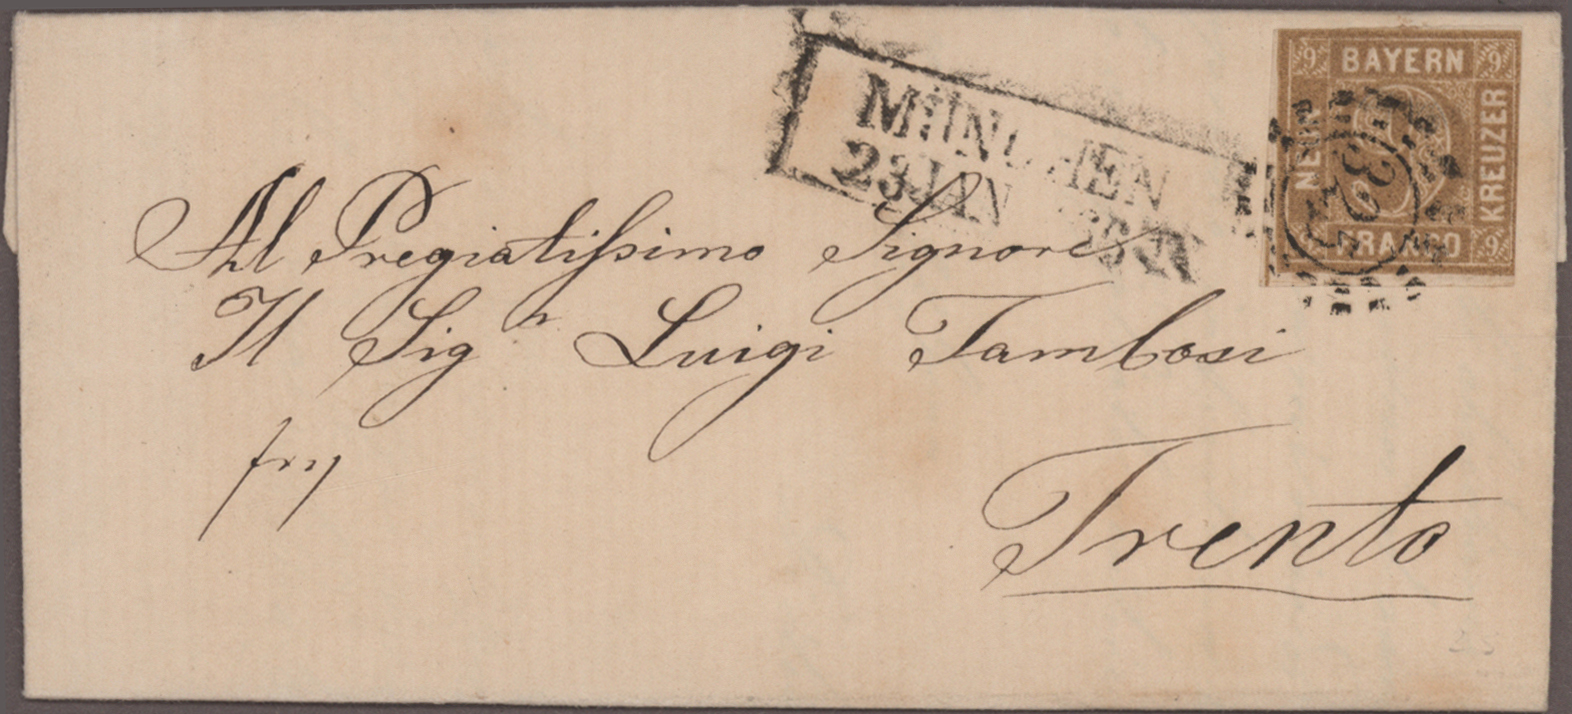 MÜNCHEN
23 JAN
9 BAYERN 9
NEUN
KREUZER
FRANCO 9
Al Pregiatissimo Signore
Il Sigr Luigi Tambosi
Trento